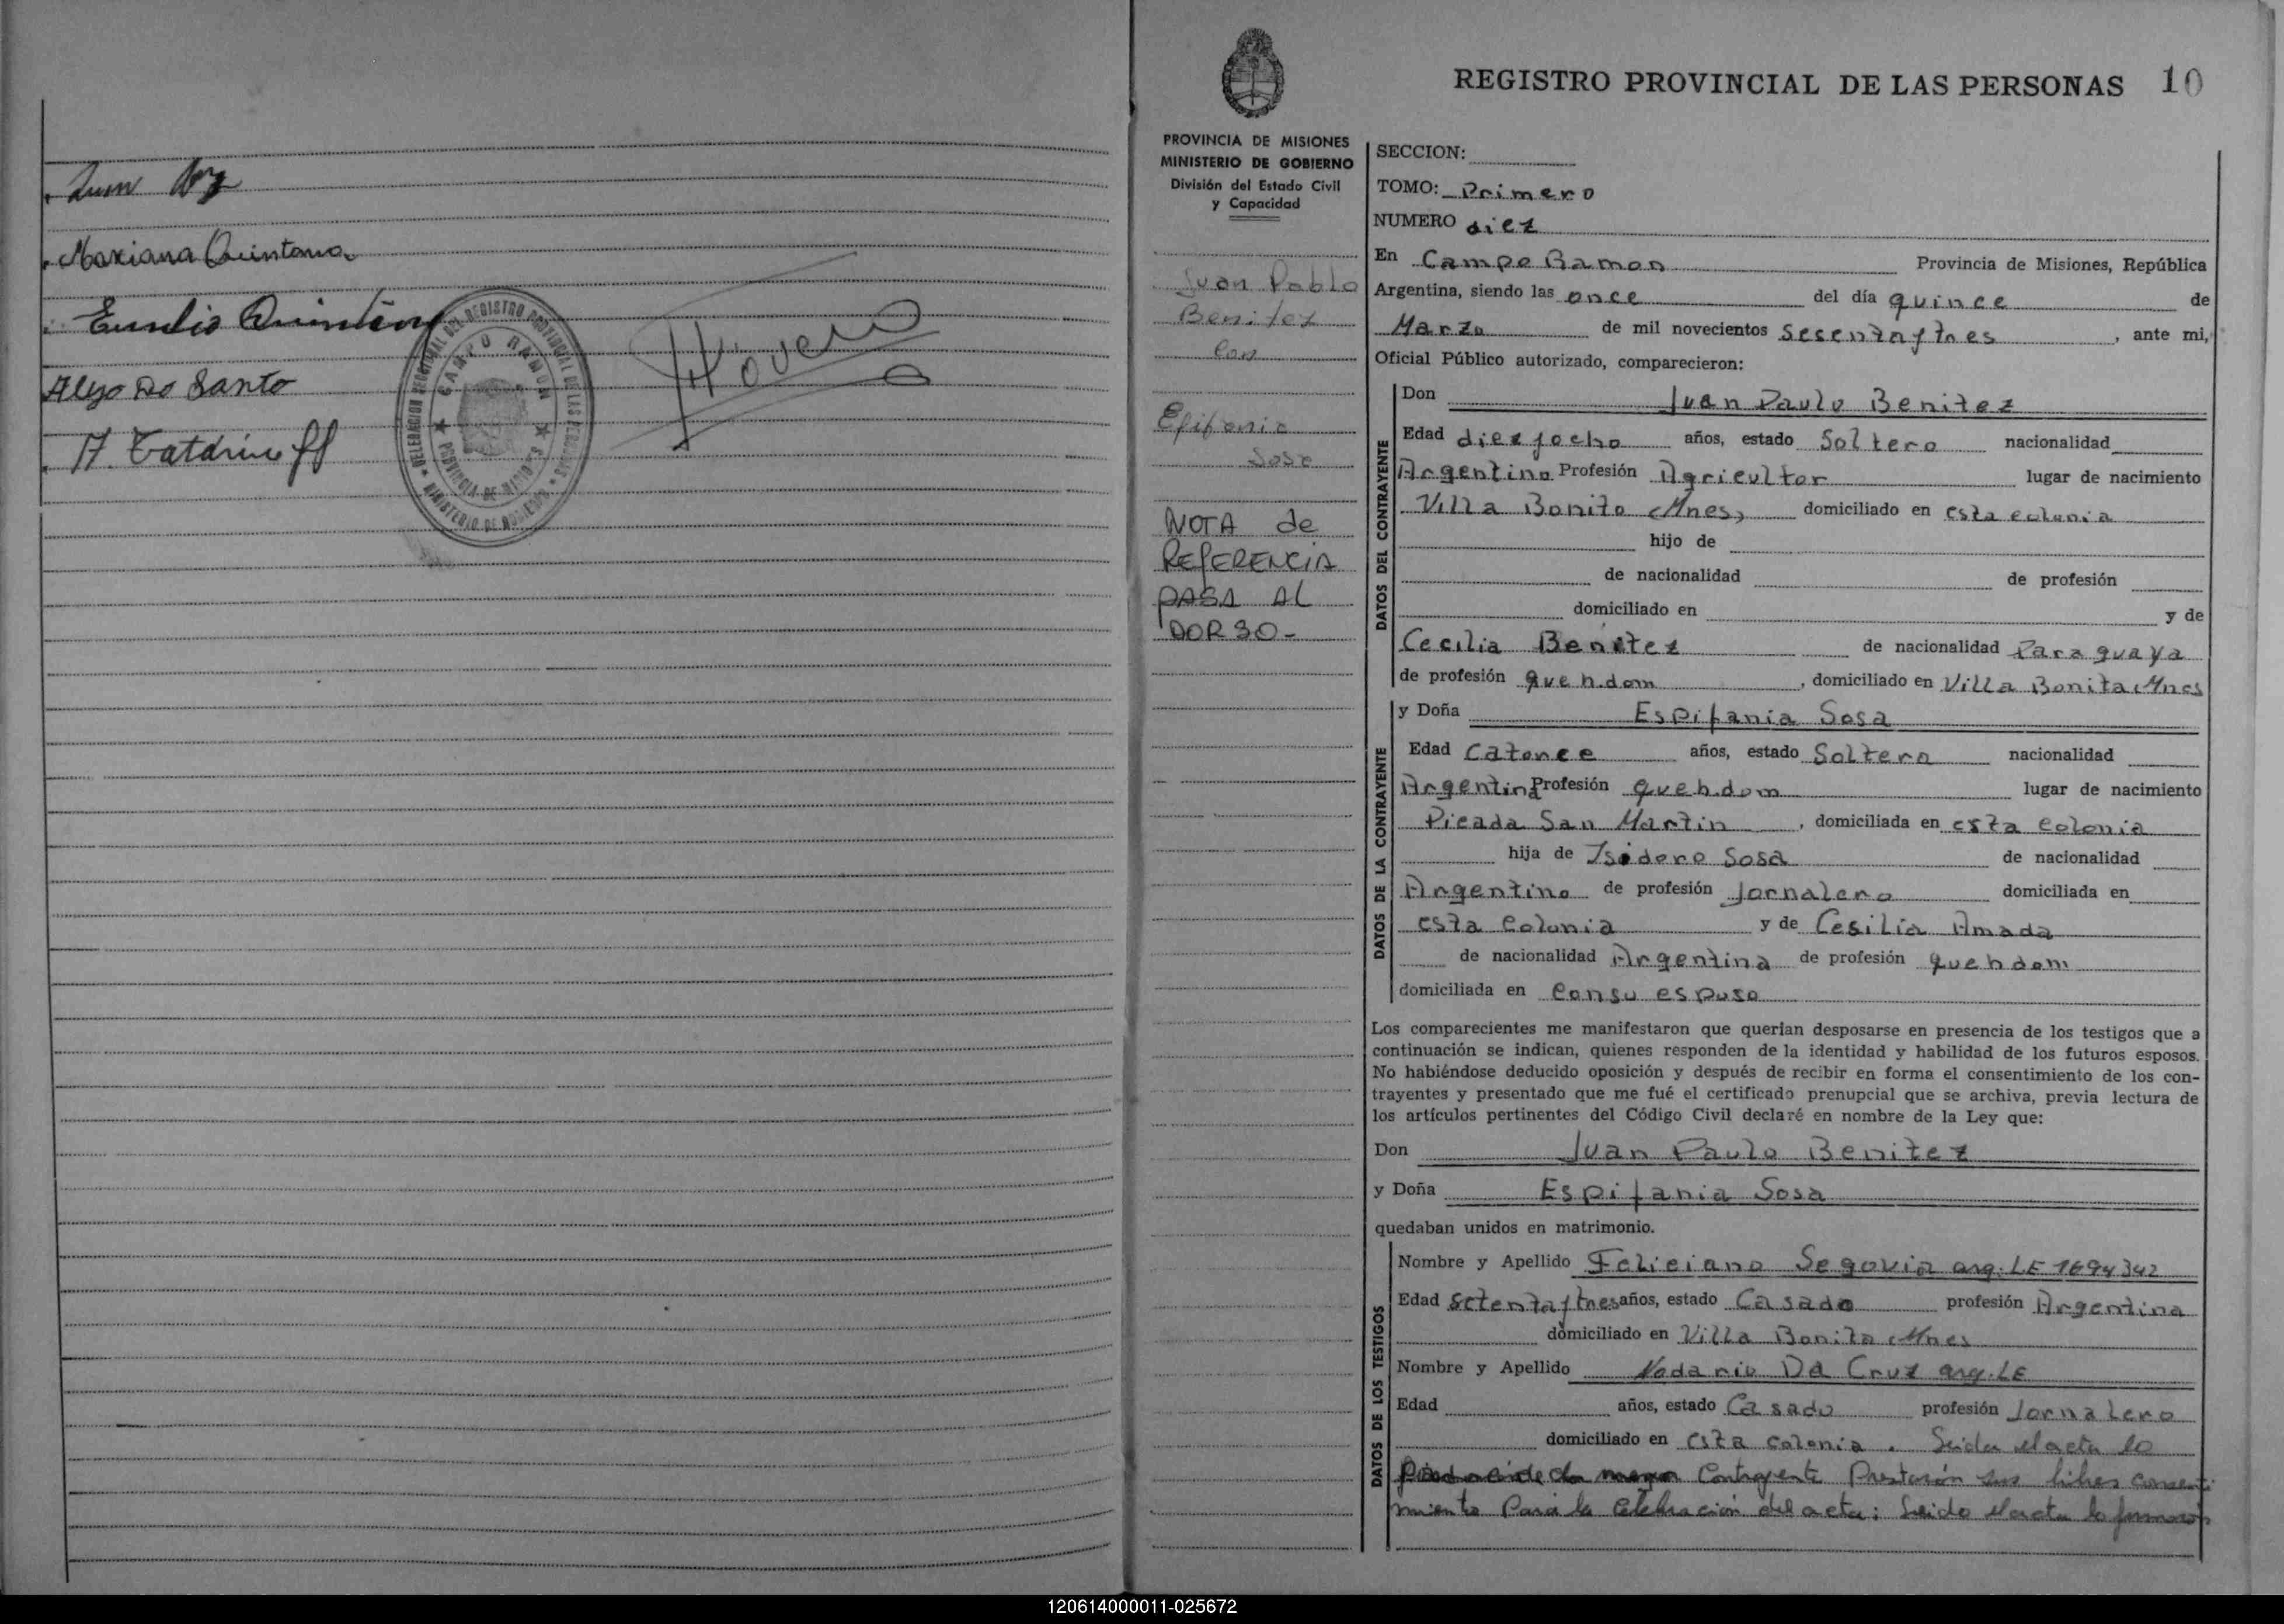 Juan
Mariana Quintana
Eusebio Quintana
Alejo Do Santo
H. Tatarinoff
DELEGACION REGIONAL DEL REGISTRO PROVINCIAL DE LAS PERSONAS
CAMPO RAMON
PROVINCIA DE MISIONES
MINISTERIO DE GOBIERNO
REGISTRO PROVINCIAL DE LAS PERSONAS 10
PROVINCIA DE MISIONES
MINISTERIO DE GOBIERNO
División del Estado Civil
y Capacidad
Juan Pablo
Benitez
con
Epifania
Sosa
NOTA de
REFERENCIA
PASA AL
DORSO-
SECCION:
TOMO: Primero
NUMERO diez
En Campo Ramon Provincia de Misiones, República
Argentina, siendo las once del día quince de
Marzo de mil novecientos sesentaytres, ante mi,
Oficial Público autorizado, comparecieron:
DATOS DEL CONTRAYENTE
Don Juan Paulo Benitez
Edad diezyocho años, estado Soltero nacionalidad
Argentino Profesión Agricultor lugar de nacimiento
Villa Bonita (Mnes) domiciliado en esta colonia
hijo de
de nacionalidad de profesión
domiciliado en y de
Cecilia Benitez de nacionalidad Paraguaya
de profesión queh.dom, domiciliado en Villa Bonita Mnes
DATOS DE LA CONTRAYENTE
y Doña Espifania Sosa
Edad Catorce años, estado Soltera nacionalidad
Argentina Profesión queh.dom lugar de nacimiento
Picada San Martin, domiciliada en esta colonia
hija de Isidoro Sosa de nacionalidad
Argentino de profesión Jornalero domiciliada en
esta colonia y de Cesilia Amada
de nacionalidad Argentina de profesión queh dom
domiciliada en consu esposo
Los comparecientes me manifestaron que querían desposarse en presencia de los testigos que a
continuación se indican, quienes responden de la identidad y habilidad de los futuros esposos.
No habiéndose deducido oposición y después de recibir en forma el consentimiento de los con-
trayentes y presentado que me fué el certificado prenupcial que se archiva, previa lectura de
los artículos pertinentes del Código Civil declaré en nombre de la Ley que:
Don Juan Paulo Benitez
y Doña Espifania Sosa
quedaban unidos en matrimonio.
DATOS DE LOS TESTIGOS
Nombre y Apellido Feliciano Segovia arg. LE 1694342
Edad setentaytres años, estado Casado profesión Argentina
domiciliado en Villa Bonita Mnes
Nombre y Apellido Nadario Da Cruz arg. LE
Edad años, estado Casado profesión Jornalero
domiciliado en esta colonia. Leida el acta lo
Contrayente Prestarón sus libres consenti
miento Para la Celebración del acta; Leido el acta lo firmarón
120614000011-025672